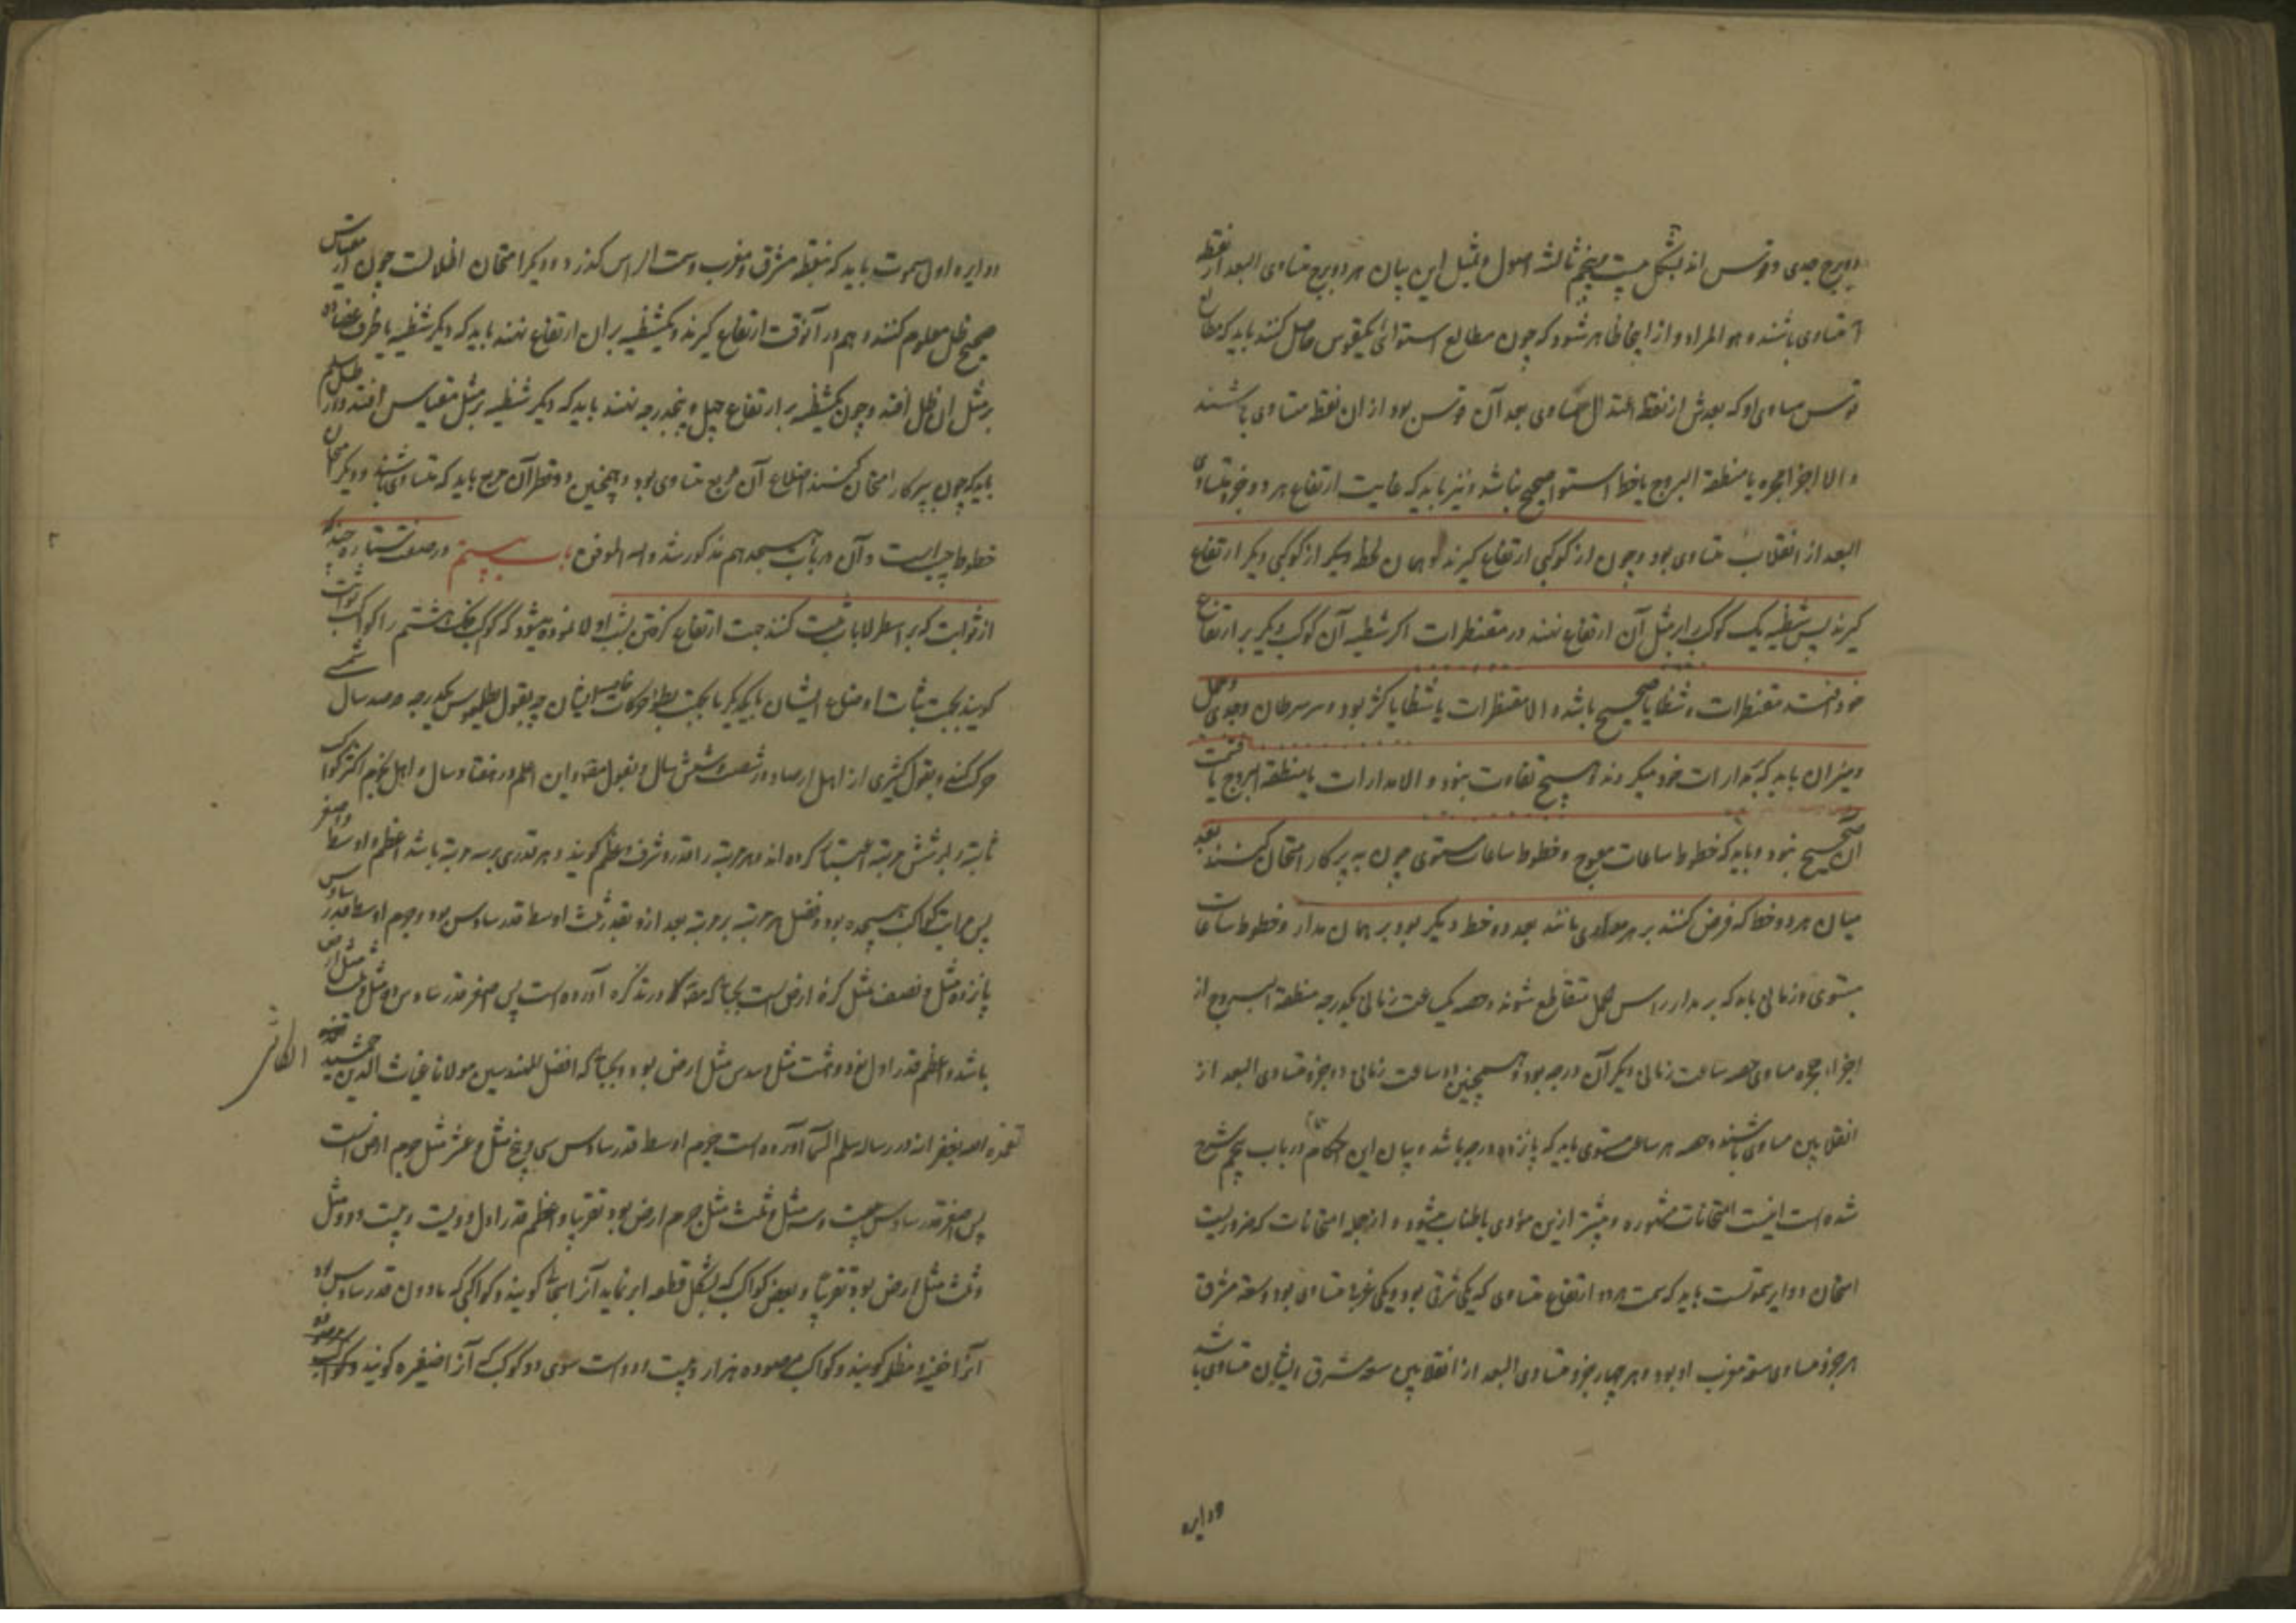 دو برج جدی و قوس اند بشکل بیست پنجم ثالثه اصول و بمثل این بیان هر دو برج متساوی البعد از نقطه
متساوی باشند و هو المراد و از اینجا ظاهر شود که چون مطالع استوائی یکقوس حاصل کنند باید که مطالع
قوس مساوی او که بعدش از نقطه اعتدال مساوی بعد آن قوس بود از ان نقطه متساوی باشند
و الا اجزا حجره یا منطقة البروج یا خط استوا صحیح نباشد و نیز باید که غایت ارتفاع هر دو جزو متساوی
البعد از انقلاب متساوی بود و چون از کوکبی ارتفاع گیرند و همان لحظه دیگر از کوکبی دیگر ارتفاع
گیرند پس شظیه یک کوکب را بر مثل آن ارتفاع نهند در مقنطرات اگر شظیه آن کوکب دیگر بر ارتفاع
خود افتد مقنطرات و شظایا صحیح باشد و الا مقنطرات یا شظایا کژ بود و سر سرطان و جدی و حمل
و میزان باید که بمدارات خود میگردند و هیچ تفاوت نبود و الا مدارات یا منطقة البروج یا قسمت
آن صحیح نبود و باید که خطوط ساعات معوج و خطوط ساعات مستوی چون به پرکار امتحان کنند بعد
میان هر دو خط که فرض کنند بر هر مداری مانند بعد دو خط دیگر بود بر همان مدار و خطوط ساعات
مستوی و زمانی باید که بر مدار راس الحمل متقاطع شوند و حصه یک ساعت زمانی یکدرجه منطقة البروج از
اجزاء حجره مساوی حصه ساعت زمانی دیگر آن درجه بود و همچنین دو ساعت زمانی دو جزو متساوی البعد از
انقلابین مساوی باشند و حصه هر ساعت مستوی باید که پانزده درجه باشد و بیان این احکام در باب پنجم مشروح
شده است اینست امتحانات مشهوره و بیشتر ازین مؤدی باطناب میشود و از جمله امتحانات که ضروریست
امتحان دوایر سموتست باید که سمت هر دو ارتفاع متساوی که یکی شرقی بود و یکی غربی متساوی بود و سعة مشرق
هر جزو مساوی سعة مغرب او بود و هر چهار جزو متساوی البعد از انقلابین سعة مشرق ایشان متساوی باشد
و دایره
و دایره اول سموت باید که بنقطه مشرق و مغرب و سمت الراس گذرد و دیگر امتحان اظلالست چون از مقیاس
صحیح ظل معلوم کنند و هم در آنوقت ارتفاع گیرند و یکشظیه بر ان ارتفاع نهند باید که دیگر شظیه یا طرف عضاده
بر مثل ان ظل افتد و چون یکشظیه بر ارتفاع چهل و پنجدرجه نهند باید که دیگر شظیه بر مثل مقیاس افتد و در ظل سلم
باید که چون بپرکار امتحان کنند اضلاع آن مربع متساوی بود و همچنین دو قطر آن مربع باید که متساوی باشند و دیگر امتحان
خطوط جیب است و آن در باب هیجدهم مذکور شد و الله الموفق باب بیستم در صفت ستاره چند که
از ثوابت که بر اسطرلاب ثبت کنند جهت ارتفاع گرفتن بشب اولا نموده میشود که کوکب فلک هشتم را کواکب ثوابت
گویند بجهت ثبات اوضاع ایشان بایکدیگر یا بجهت بطؤ حرکات خاصه ایشان چه بقول بطلمیوس یکدرجه در صد سال شمسی
حرکت کنند و بقول کثیری از اهل ارصاد در شصت و شش سال و بقول اهل در هفتاد سال و اهل نجوم اکثر کواکب
ثابته را بر شش مرتبه اعتبار کرده اند و هر مرتبه را قدر و شرف و عظم گویند و هر قدری بر سه مرتبه باشد اعظم و اوسط و اصغر
پس مراتب کواکب هیجده بود و فضل هر مرتبه بر مرتبه بعد ازو بقدر ثلث اوسط قدر سادس بود و جرم اوسط قدر سادس
پانزده مثل و نصف مثل کرهٔ ارض است بحسابی که در تذکره آورده است پس اصغر قدر سادس ده مثل و ثلث مثل ارض
باشد و اعظم قدر اول نود و هشت مثل و سدس مثل ارض بود و بحسابی که افضل المهندسین مولانا غیاث الدین جمشید
الکاشی
تغمده الله بغفرانه در رساله سلم السما آورده است جرم اوسط قدر سادس سی و پنج مثل و عشر مثل جرم ارض است
پس اصغر قدر سادس بیست و سه مثل و ثلث مثل جرم ارض بود تقریبا و اعظم قدر اول دویست و بیست و دو مثل
و ثلث مثل ارض بود تقریبا و بعضی کواکب که بشکل قطعه ابر نماید آنرا سحابی گویند و کواکبی که مادون قدر سادس بود
آنرا خفیه و مظلم گویند و کواکب مرصوده هزار و بیست و دو است سوی دو کوکب که آنرا ضفیره گویند و کواکب مرصوده